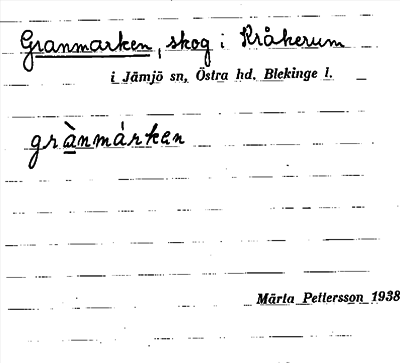 Granmarken, skog i Kråkerum
i Jämjö sn, Östra hd, Blekinge l.
grànmárken
Märta Pettersson 1938